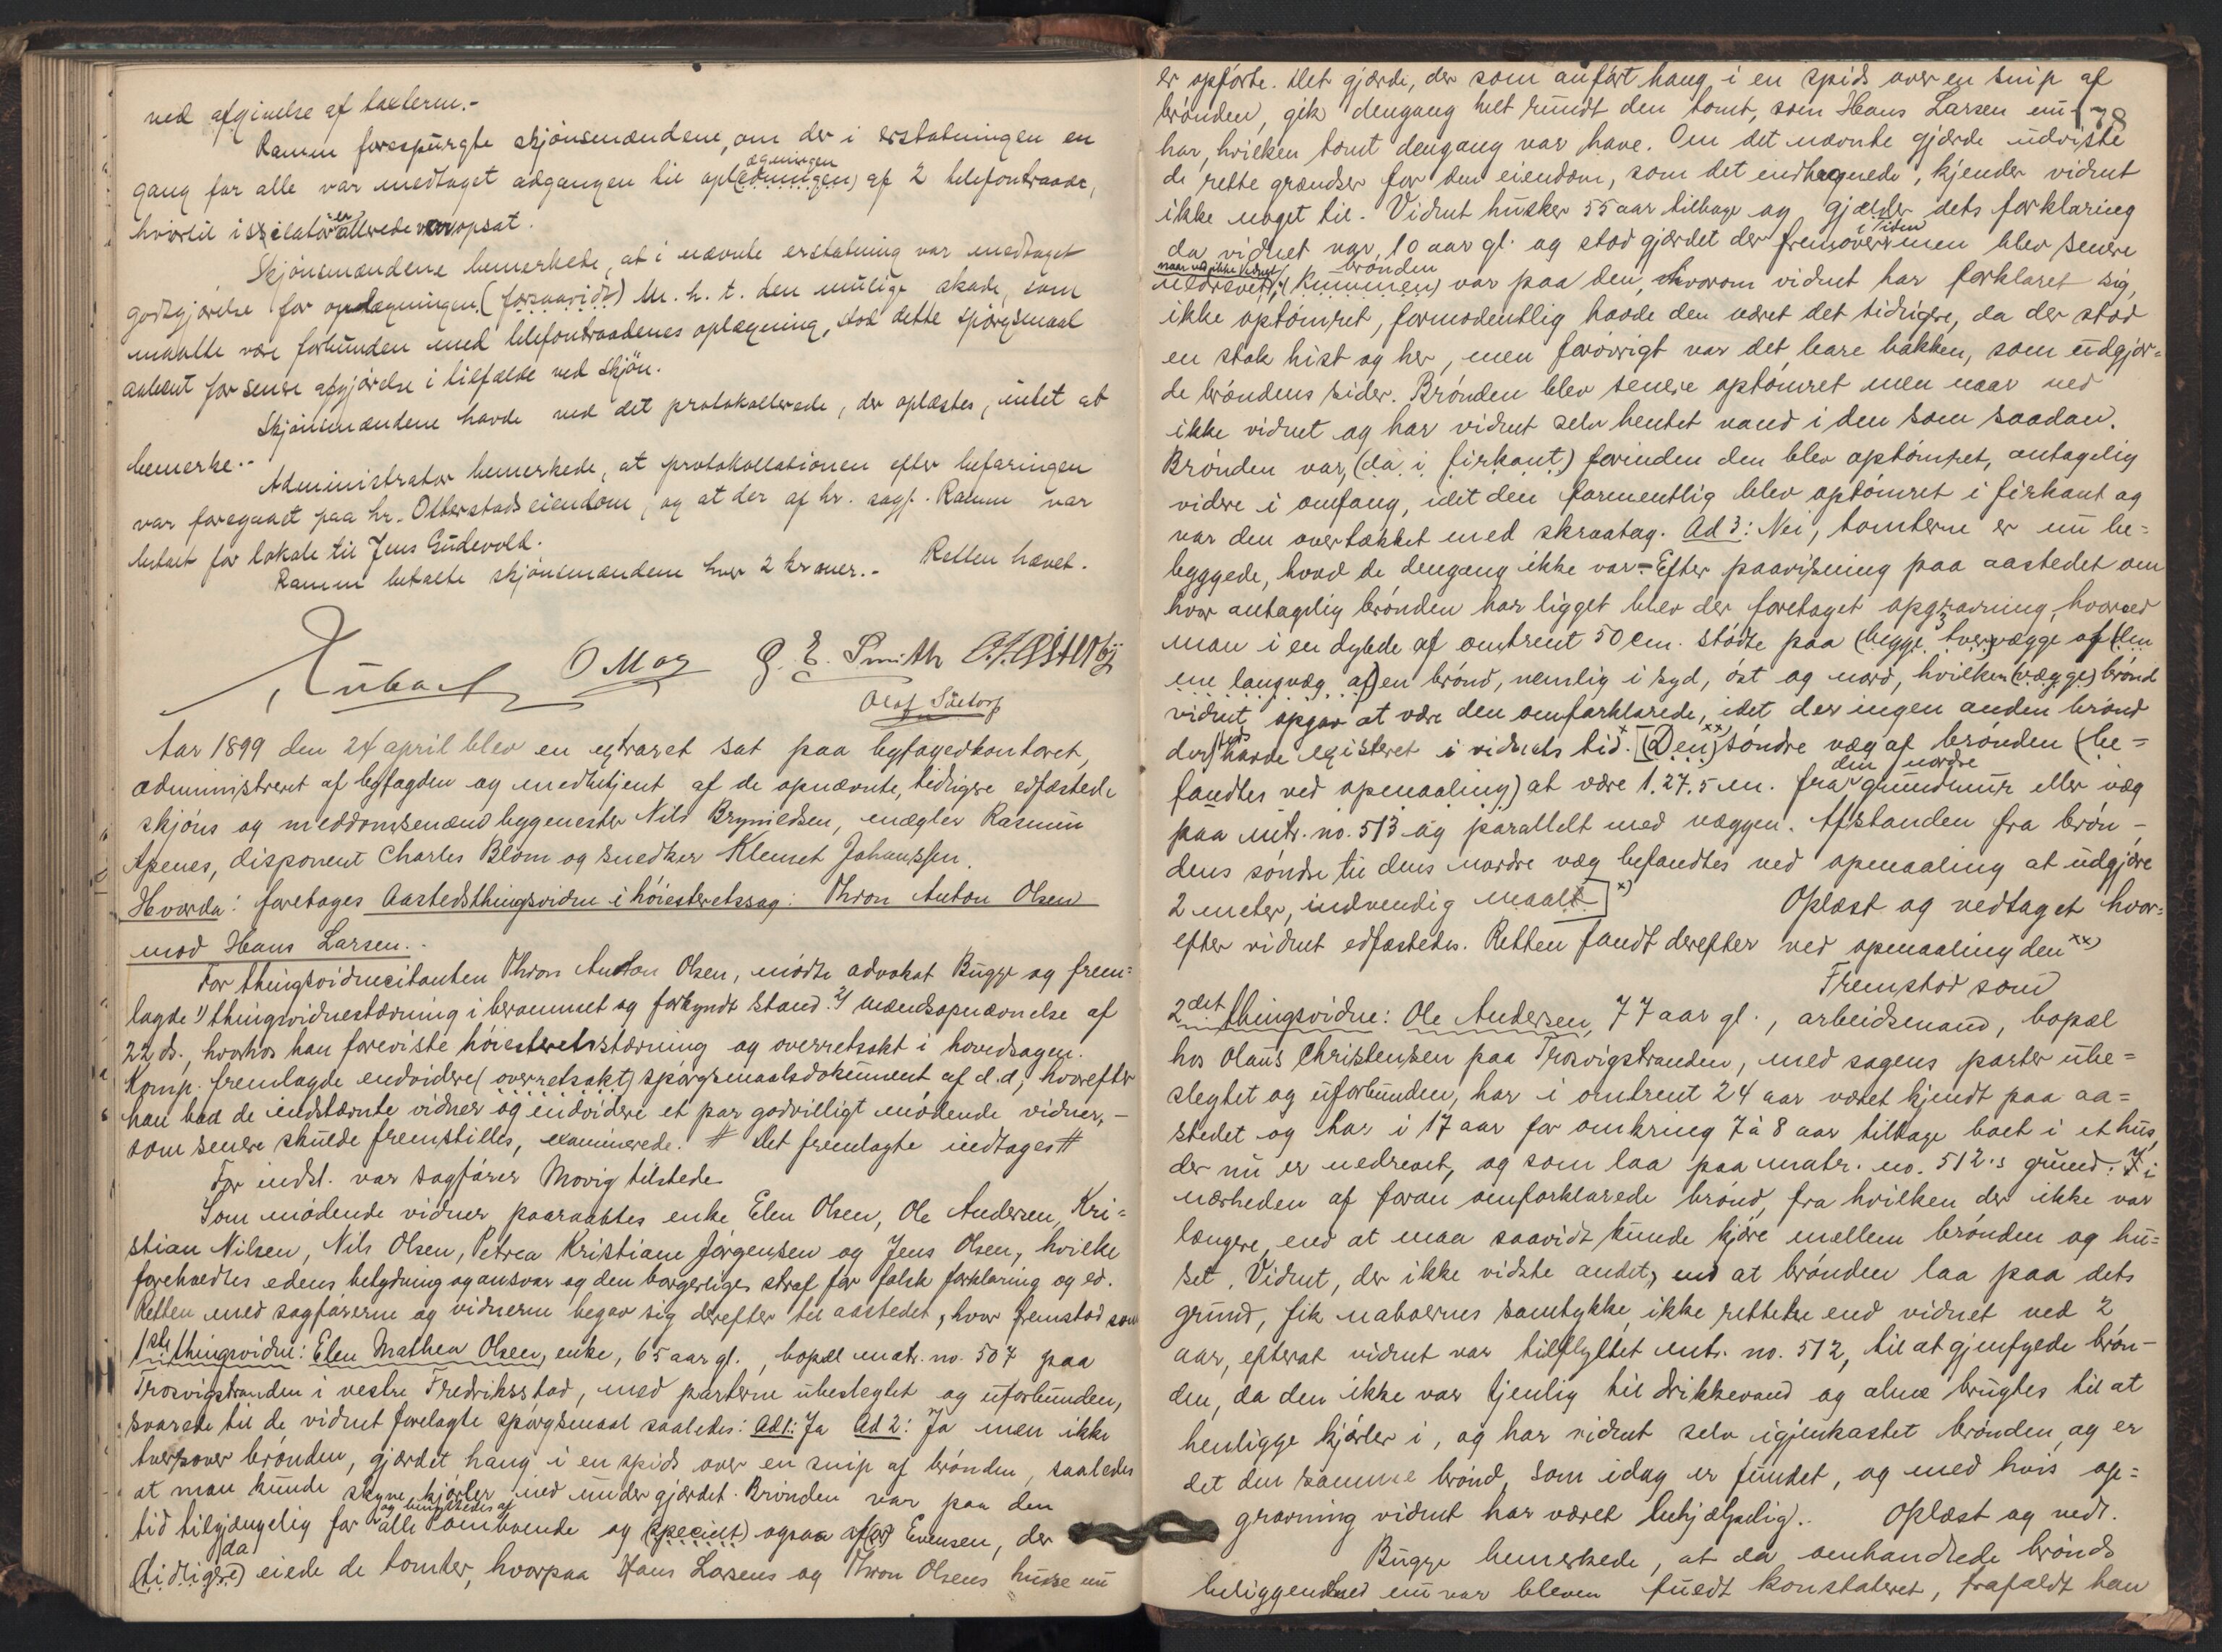 ved afgivelse af taxterne.-
Ramm forespurgte skjönsmændene, om der i erstatningen en
gang for alle var medtaget adgangen til opl(edningen) ægningen af 2 telefontraade,
hvortil isolatör er allerede var opsat.
Skjönsmændene bemerkede, at i nævnte erstatning var medtaget
godtgjörelse for oplægningen (forsaavidt) M. h. t. den mulige skade, som
maatte være forbunden med telefontraadenes oplægning, stod dette spörgsmaal
aabent for senere afgjörelse i tilfælde ved skjön.
Skjönsmændene havde ved det protokollerede, der oplæstes, intet at
bemerke.-
Administrator bemerkede, at protokollationen efter befaringen
var foregaaet paa hr. Otterstads eiendom, og at der af hr. sagf. Ramm var
betalt for lokale til Jens Gudevold.
Ramm betalte skjönsmændene hver 2 kroner.- Retten hævet.
O Moe G. E. Smith
Olaf Sæstorp
Aar 1899 den 24 april blev en extraret sat paa byfogedkontoret,
administreret af byfogden og medbetjent af de opnævnte, tidligere edfæstede
skjöns og meddomsmænd bygmester Nils Brynildsen, mægler Rasmus
Apenes, disponent Charles Blom og snedker Klemet Johanssen.
Hvorda: foretoges Aastedsthingsvidne i höiesteretssag: Thron Anton Olsen
mod Hans Larsen.-
For thingsvidnecitanten Thron Anton Olsen, mödte advokat Bugge og frem=
lagde 1) thingsvidnestævning i berammet og forkyndt stand. 2) mændsopnævnelse af
22 ds., hvorhos han foreviste höiesteretsstævning og overretsakt i hovedsagen.
Komp. fremlagde endvidere (overretsakt) spörgsmaalsdokument af d.d., hvorefter
han bad de indstævnte vidner og endvidere et par godvilligt mödende vidner, -
som senere skulde fremstilles, examinerede. # Det fremlagte indtages #
For indst. var sagförer Morig tilstede
Som mödende vidner paaraabtes enke Elen Olsen, Ole Andersen, Kri=
stian Nilsen, Nils Olsen, Petrea Kristiane Jörgensen og Jens Olsen, hvilke
foreholdtes edens betydning og ansvar og den borgerlige straf for falsk forklaring og ed.
Retten med sagförerne og vidnerne begav sig derefter til aastedet, hvor fremstod som
1ste thingsvidne: Elen Mathea Olsen, enke, 65 aar gl., bopæl matr. no. 507 paa
Trosvigstranden i vestre Fredriksstad, med parterne ubeslegtet og uforbunden,
svarede til de vidnet forelagte spörgsmaal saaledes: Ad 1: Ja Ad 2: Ja men ikke
tvers over brönden, gjærdet hang i en spids over en snip af brönden, saaledes
at man kunde skyve kjörler ned under gjærdet. Brönden var paa den
tid tilgjængelig for og benyttedes af alle omboende og (specielt) ogsaa af (A) Evensen, der
(tidligere) da eiede de tomter, hvorpaa Hans Larsens og Thron Olsens huse nu
138
er opförte. Det gjærde, der som anfört hang i en spids over en snip af
brönden, gik dengang helt rundt den tomt, som Hans Larsen nu
har, hvilken tomt dengang var have. Om det nævnte gjærde udviste
de rette grændser for den eiendom, som det endhegnede, kjender vidnet
ikke noget til. Vidnet husker 55 aar tilbage og gjælder dets forklaring
da vidnet var 10 aar gl. og stod gjærdet der fremover i tiden men blev senere
nedrevet, naar ved ikke vidnet. (Kummen) brönden var paa den, hvorom vidnet har forklaret sig,
ikke optömret, formodentlig havde den været det tidligere, da der stod
en stok hist og her, men forövrigt var det bare bakken, som udgjor=
de bröndens sider. Brönden blev senere optömret men naar ved
ikke vidnet og har vidnet selv hentet vand i den som saadan.
Brönden var, (da i firkant) forinden den blev optömret, antagelig
videre i omfang, idet den formentlig blev optömret i firkant og
var den overtækket med skraatag. Ad 3: Nei, tomterne er nu be=
byggede, hvad de dengang ikke var.- Efter paavisning paa aastedet om
hvor antagelig brönden har ligget blev der foretaget opgravning, hvorved
man i en dybde af omtrent 50 cm. stödte paa (begge 3 tver) vægge af (den
ene langvæg af) en brönd, nemlig i syd, öst og nord, hvilken (vægge) brönd
vidnet opgav at være den omforklarede, idet der ingen anden brönd
dersteds havde existeret i vidnets tid. [(Den) xx) söndre væg af brönden (be=
fandtes ved opmaaling) at være 1.27.5 m. fra den nordre grundmur eller væg
paa mtr. no. 513 og parallelt med væggen. Afstanden fra brön-
dens söndre til dens nordre væg befandtes ved opmaaling at udgjöre
2 meter, indvendig maalt] x) Oplæst og vedtaget hvor=
efter vidnet edfæstedes. Retten fandt derefter ved opmaaling den xx)
Fremstod som
2det thingsvidne: Ole Andersen, 77 aar gl., arbeidsmand, bopæl
hos Olaus Christensen paa Trosvigstranden, med sagens parter ube=
slegtet og uforbunden, har i omtrent 24 aar været kjendt paa aa=
stedet og har i 17 aar for omkring 7 à 8 aar tilbage boet i et hus,
der nu er nedrevet, og som laa paa matr. no. 512.s grund. I
nærheden af foran omforklarede brönd, fra hvilken der ikke var
længere, end at man saavidt kunde kjöre mellem brönden og hu=
set. Vidnet, der ikke vidste andet, end at brönden laa paa dets
grund, fik naboernes samtykke, ikke rettere end vidnet ved 2
aar, efterat vidnet var tilflyttet mtr. no. 512, til at gjenfylde brön-
den, da den ikke var tjenlig til drikkevand og alene brugtes til at
henligge kjörler i, og har vidnet selv igjenkastet brönden, og er
det den samme brönd, som idag er fundet, og med hvis op=
gravning vidnet har været behjælpelig.. Oplæst og vedt.
Bugge bemerkede, at da omhandlede brönds
beliggenhed nu var bleven fuldt konstateret, frafaldt han